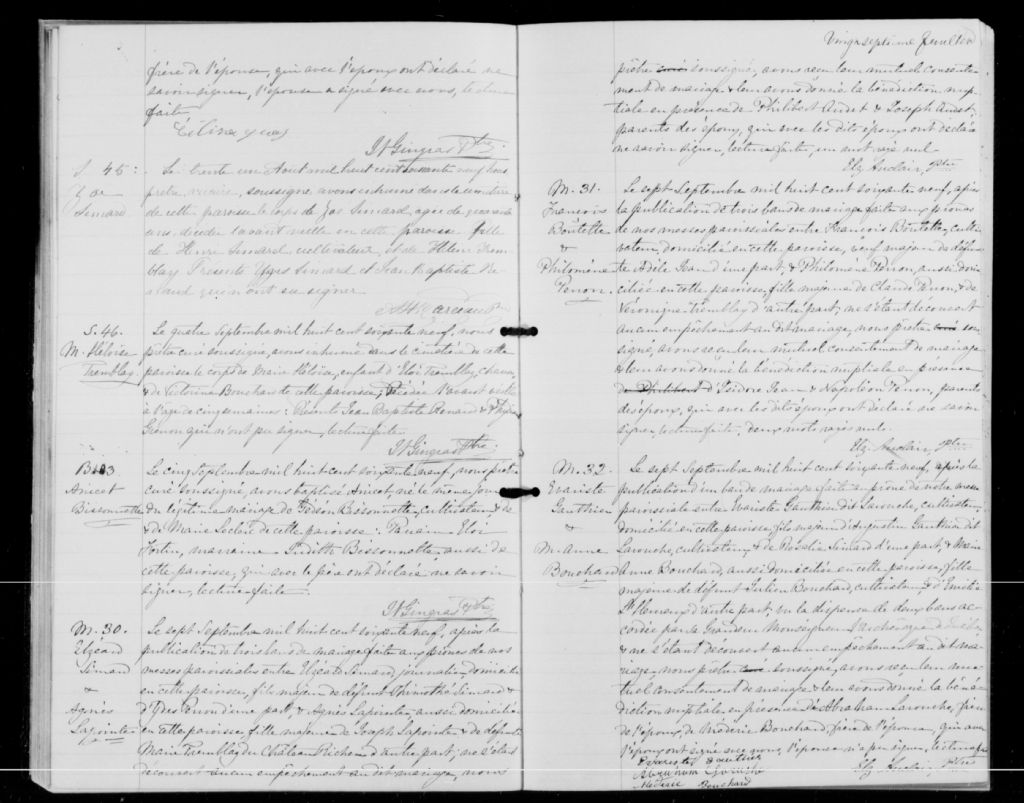 frère de l'épouse, qui avec l'époux ont déclaré ne
savoir signer, l'épouse a signé avec nous, lecture
faite
N Gingras Ptre
S. 45:
Simard
Le trente un Août mil huit cent soixante neuf nous
prêtre vicaire, soussigné, avons inhumé dans le cimetière
de cette paroisse le corps de Zoé Simard, agée de quarante
ans, décédée l'avant veille en cette paroisse fille
de Henri Simard cultivateur et de Hélène Trem-
blay Présents Simard et Jean Baptiste Re-
naud qui n'ont su signer
S. 46.
M. Héloïse
Tremblay
Le quatre Septembre mil huit cent soixante neuf, nous
prêtre curé soussigné, avons inhumé dans le cimetière de cette
paroisse le corps de Marie Héloïse, enfant d'Eloi Tremblay
& de Victorine Bouchard de cette paroisse, décédée l'avant veille
à l'age de cinq semaines: Présents Jean Baptiste Renaud &
Grenon qui n'ont pu signer, lecture faite
N Gingras Ptre
Anicet
Bissonnette
Le cinq Septembre mil huit cent soixante neuf, nous prêtre
curé soussigné, avons baptisé Anicet, né le même jour
du légitime mariage de Gédéon Bissonnette, cultivateur & de
& de Marie Leclerc de cette paroisse: Parrain Eloi
Fortin, marraine Judith Bissonnette, aussi de
cette paroisse, qui avec le père ont déclaré ne savoir
signer, lecture faite
N Gingras Ptre
M. 30.
Elzéard
Simard
&
Agnès
Lapointe
Le sept Septembre mil huit cent soixante neuf, après la
publication de trois bans de mariage faite aux prônes de nos
messes paroissiales entre Elzéard Simard, journalier, domicilié
en cette paroisse, fils majeur de défunt Thimothé Simard &
d' Perron d'une part, & Agnès Lapointe aussi domiciliée
en cette paroisse, fille majeure de Joseph Lapointe & de défunte
Marie Tremblay du Château Richer d'autre part; ne s'étant
découvert aucun empêchement au dit mariage, nous
Vingt septième feuillet
prêtre curé soussigné, avons reçu leur mutuel consente-
ment de mariage & leur avons donné la bénédiction nup-
tiale en présence de Philibert Audet & Joseph Audet,
parents des époux, qui avec les dits époux ont déclaré
ne savoir signer, lecture faite, un mot rayé nul
Elz Auclair, Ptre
M. 31.
François
Boutette
&
Philomène
Perron.
Le sept Septembre mil huit cent soixante neuf, après
la publication de trois bans de mariage faite aux prônes
de nos messes paroissiales entre François Boutette, culti-
vateur, domicilié en cette paroisse, veuf majeur de défun-
te Adèle Jean d'une part, & Philomène Perron, aussi domi-
ciliée en cette paroisse, fille majeure de Claude Perron, & de
Véronique Tremblay d'autre part; ne s'étant découvert
aucun empêchement au dit mariage, nous prêtre curé sous-
signé, avons reçu leur mutuel consentement de mariage
& leur avons donné la bénédiction nuptiale en présence
de Philibert d'Isidore Jean & Napoléon Perron, parents
des époux, qui avec les dits époux ont déclaré ne savoir
signer, lecture faite, deux mots rayés nuls
Elz Auclair, Ptre
M. 32.
Evariste
Gauthier
&
M. Anne
Bouchard
Le sept Septembre mil huit cent soixante neuf, après la
publication d'un ban de mariage faite au prône de notre messe
paroissiale entre Evariste Gauthier dit Larouche, cultivateur,
domicilié en cette paroisse, fils majeur d'Augustin Gauthier dit
Larouche, cultivateur, & de Rosalie Simard d'une part, & Marie
Anne Bouchard, aussi domiciliée en cette paroisse, fille
majeure de défunt Julien Bouchard, cultivateur, & d'Emélie
d'autre part, vu la dispense de deux bans ac-
cordée par Sa Grandeur Monseigneur l'Archevêque de
& ne s'étant découvert aucun empêchement au dit ma-
riage, nous prêtre curé soussigné, avons reçu leur mu-
tuel consentement de mariage & leur avons donné la béné-
diction nuptiale en présence d'Abraham Larouche, frère
de l'époux, & de Médéric Bouchard, frère de l'épouse, qui avec
l'époux ont signé avec nous, l'épouse n'a pu signer, lecture faite
Evariste Gauthier
Abraham
Mederic Bouchard
Elz Auclair, Ptre